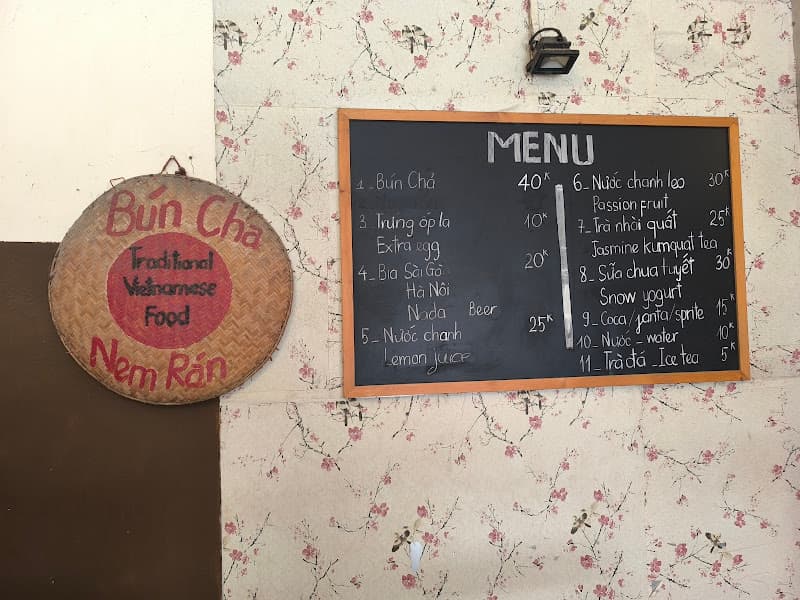 Bún Chả
Traditional
Vietnamese
Food
Nem Rán
MENU
1_ Bún Chả 40K
3_ Trưng ốp la 10K
Extra egg
4_ Bia Sài Gò 20K
Hà Nôi
Nada Beer
5_ Nước chanh 25K
Lemon juice
6_ Nước chanh leo 30K
Passion fruit
7_ Trà nhài quất 25K
Jasmine kumquat tea
8_ Sữa chua tuyết 30K
Snow yogurt
9_ Coca/fanta/sprite 15K
10_ Nước _ water 10K
11_ Trà đá _ Ice tea 5K